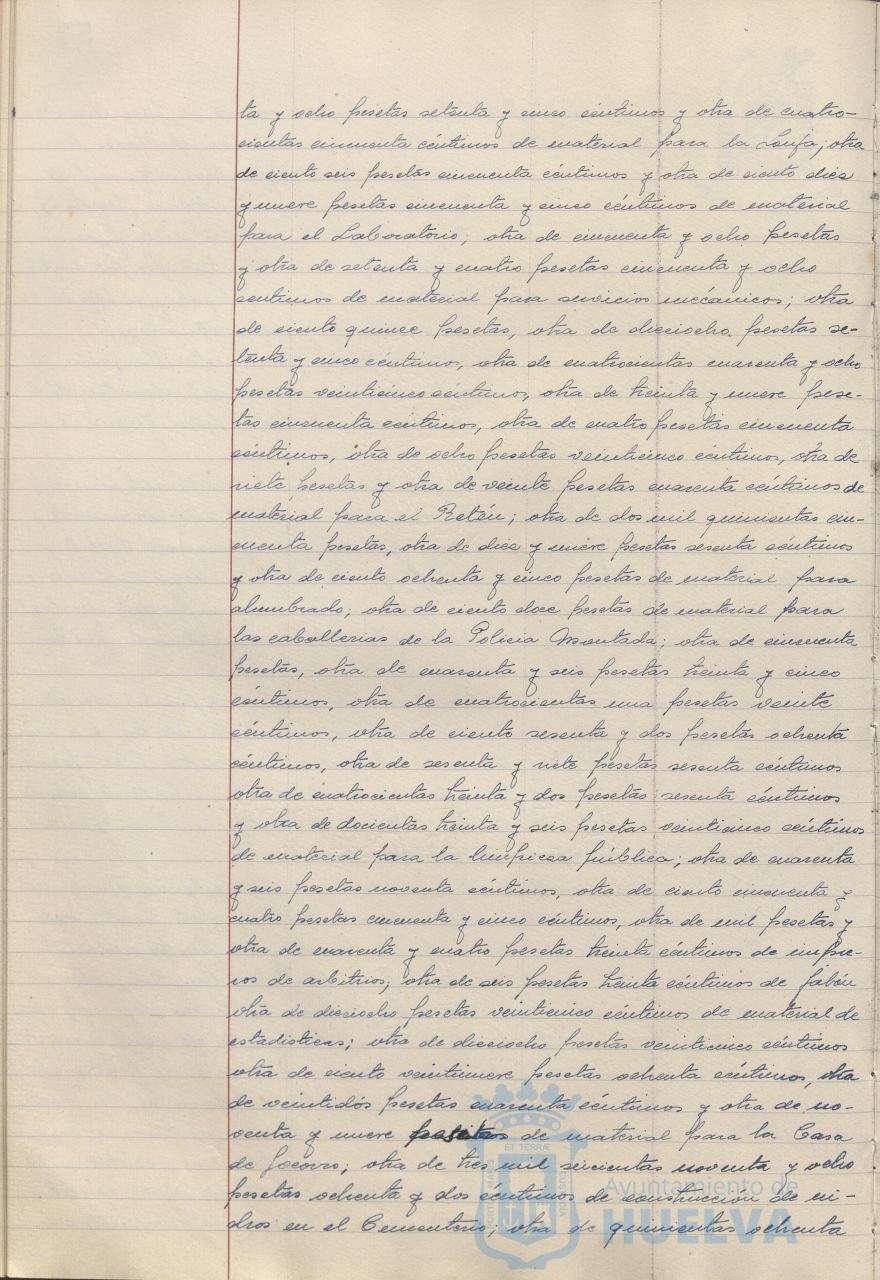 ta y ocho pesetas setenta y cinco céntimos y otra de cuatro-
cientas cincuenta céntimos de material para la Lonja; otra
de ciento seis pesetas cincuenta céntimos y otra de ciento diez
y nueve pesetas cincuenta y cinco céntimos de material
para el Laboratorio; otra de cincuenta y ocho pesetas
y otra de setenta y cuatro pesetas cincuenta y ocho
centimos de material para servicios mecánicos; otra
de ciento quince pesetas, otra de dieciocho pesetas se-
tenta y cinco céntimos, otra de cuatrocientas cuarenta y ocho
pesetas veinticinco céntimos, otra de treinta y nueve pese-
tas cincuenta céntimos, otra de cuatro pesetas cincuenta
céntimos, otra de ocho pesetas veinticinco céntimos, otra de
siete pesetas y otra de veinte pesetas cuarenta céntimos de
material para el Retén; otra de dos mil quinientas cin-
cuenta pesetas, otra de diez y nueve pesetas sesenta céntimos
y otra de ciento ochenta y cinco pesetas de material para
alumbrado; otra de ciento doce pesetas de material para
las caballerias de la Policia Montada; otra de cincuenta
pesetas, otra de cuarenta y seis pesetas treinta y cinco
céntimos, otra de cuatrocientas una pesetas veinte
céntimos, otra de ciento sesenta y dos pesetas ochenta
céntimos, otra de sesenta y siete pesetas sesenta céntimos
otra de cuatrocientas treinta y dos pesetas sesenta céntimos
y otra de docientas treinta y seis pesetas veinticinco céntimos
de material para la limpieza pública; otra de cuarenta
y seis pesetas noventa céntimos, otra de ciento cincuenta y
cuatro pesetas cincuenta y cinco céntimos, otra de mil pesetas y
otra de cuarenta y cuatro pesetas treinta céntimos de impre-
sos de arbitrios; otra de seis pesetas treinta céntimos de jabón
otra de dieciocho pesetas veinticinco céntimos de material de
estadisticas; otra de dieciocho pesetas veinticinco céntimos
otra de ciento veintinueve pesetas ochenta céntimos, otra
de veintidós pesetas cuarenta céntimos y otra de no-
venta y nueve pesetas de material para la Casa
de Socorro; otra de tres mil seiscientas noventa y ocho
pesetas ochenta y dos céntimos de construccion de ni-
chos en el Cementerio; otra de quinientas ochenta
ET TERRAE
Ayuntamiento de
HUELVA